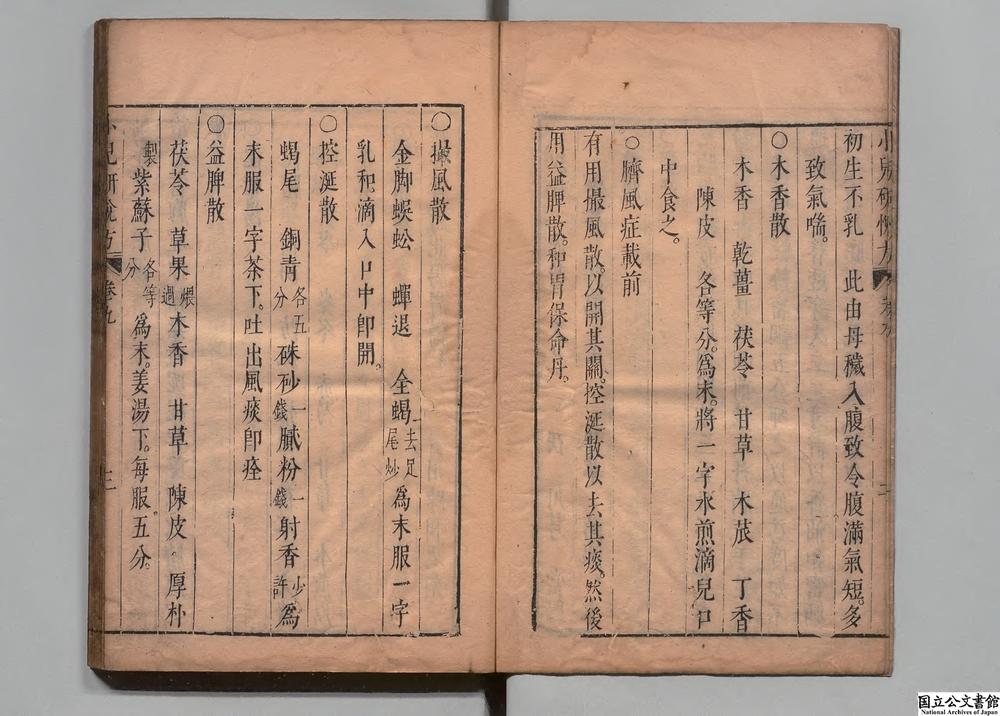 初生不乳 此由母穢入腹致令腹滿氣短。多
致氣喘。
〇木香散
木香 乾薑 茯苓 甘草 木茋 丁香
陳皮 各等分。爲末。將一字水煎滴兒口
中食之。
〇臍風症載前
有用撮風散。以開其關。控涎散以去其痰。然後
用益脾散。和胃保命丹。
〇撮風散
金脚蜈蚣 蟬退 全蝎去足尾炒 爲末服一字
乳和滴入口中卽開。
〇控涎散
蝎尾 銅青各五分 硃砂一錢 膩粉一錢 射香少許 爲
末服一字茶下。吐出風痰卽痊
〇益脾散
茯苓 草果煨過 木香 甘草 陳皮 厚朴
製 紫蘇子各等分 爲末。姜湯下。每服。五分。
卷九
三
国立公文書館
National Archives of Japan